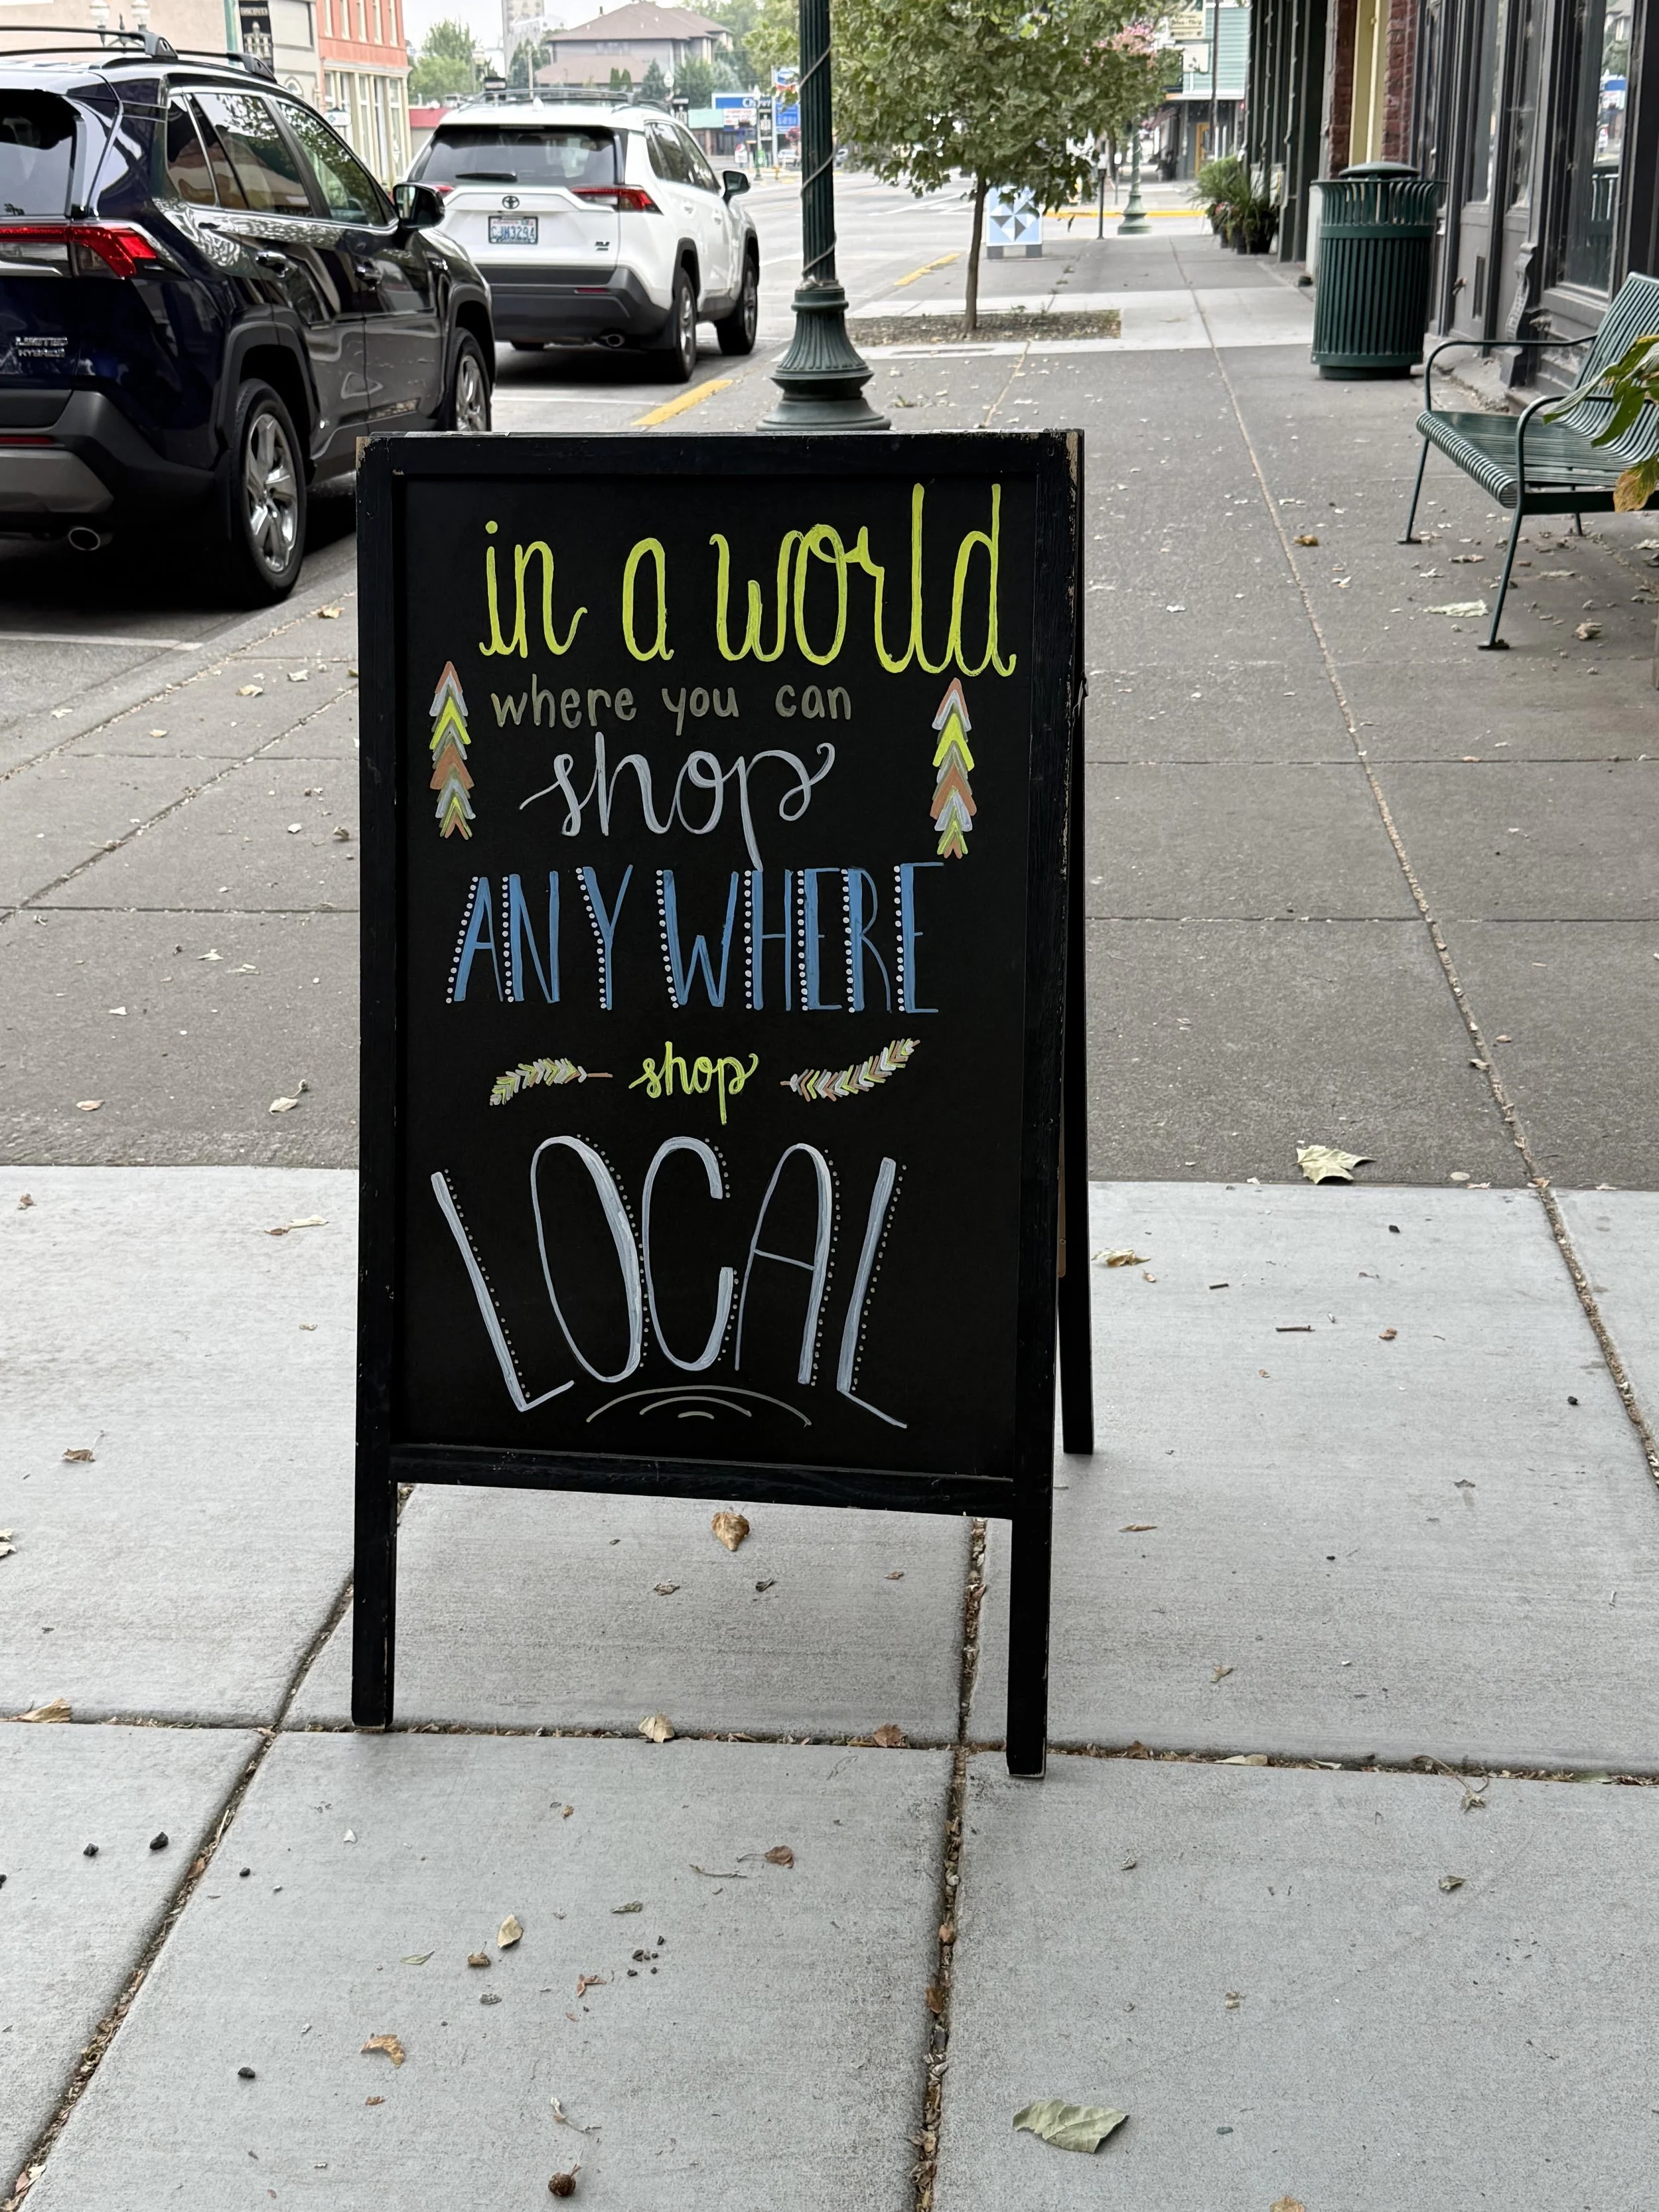 in a world
where you can
shop
ANYWHERE
shop
LOCAL
LIMITED
HYBRID